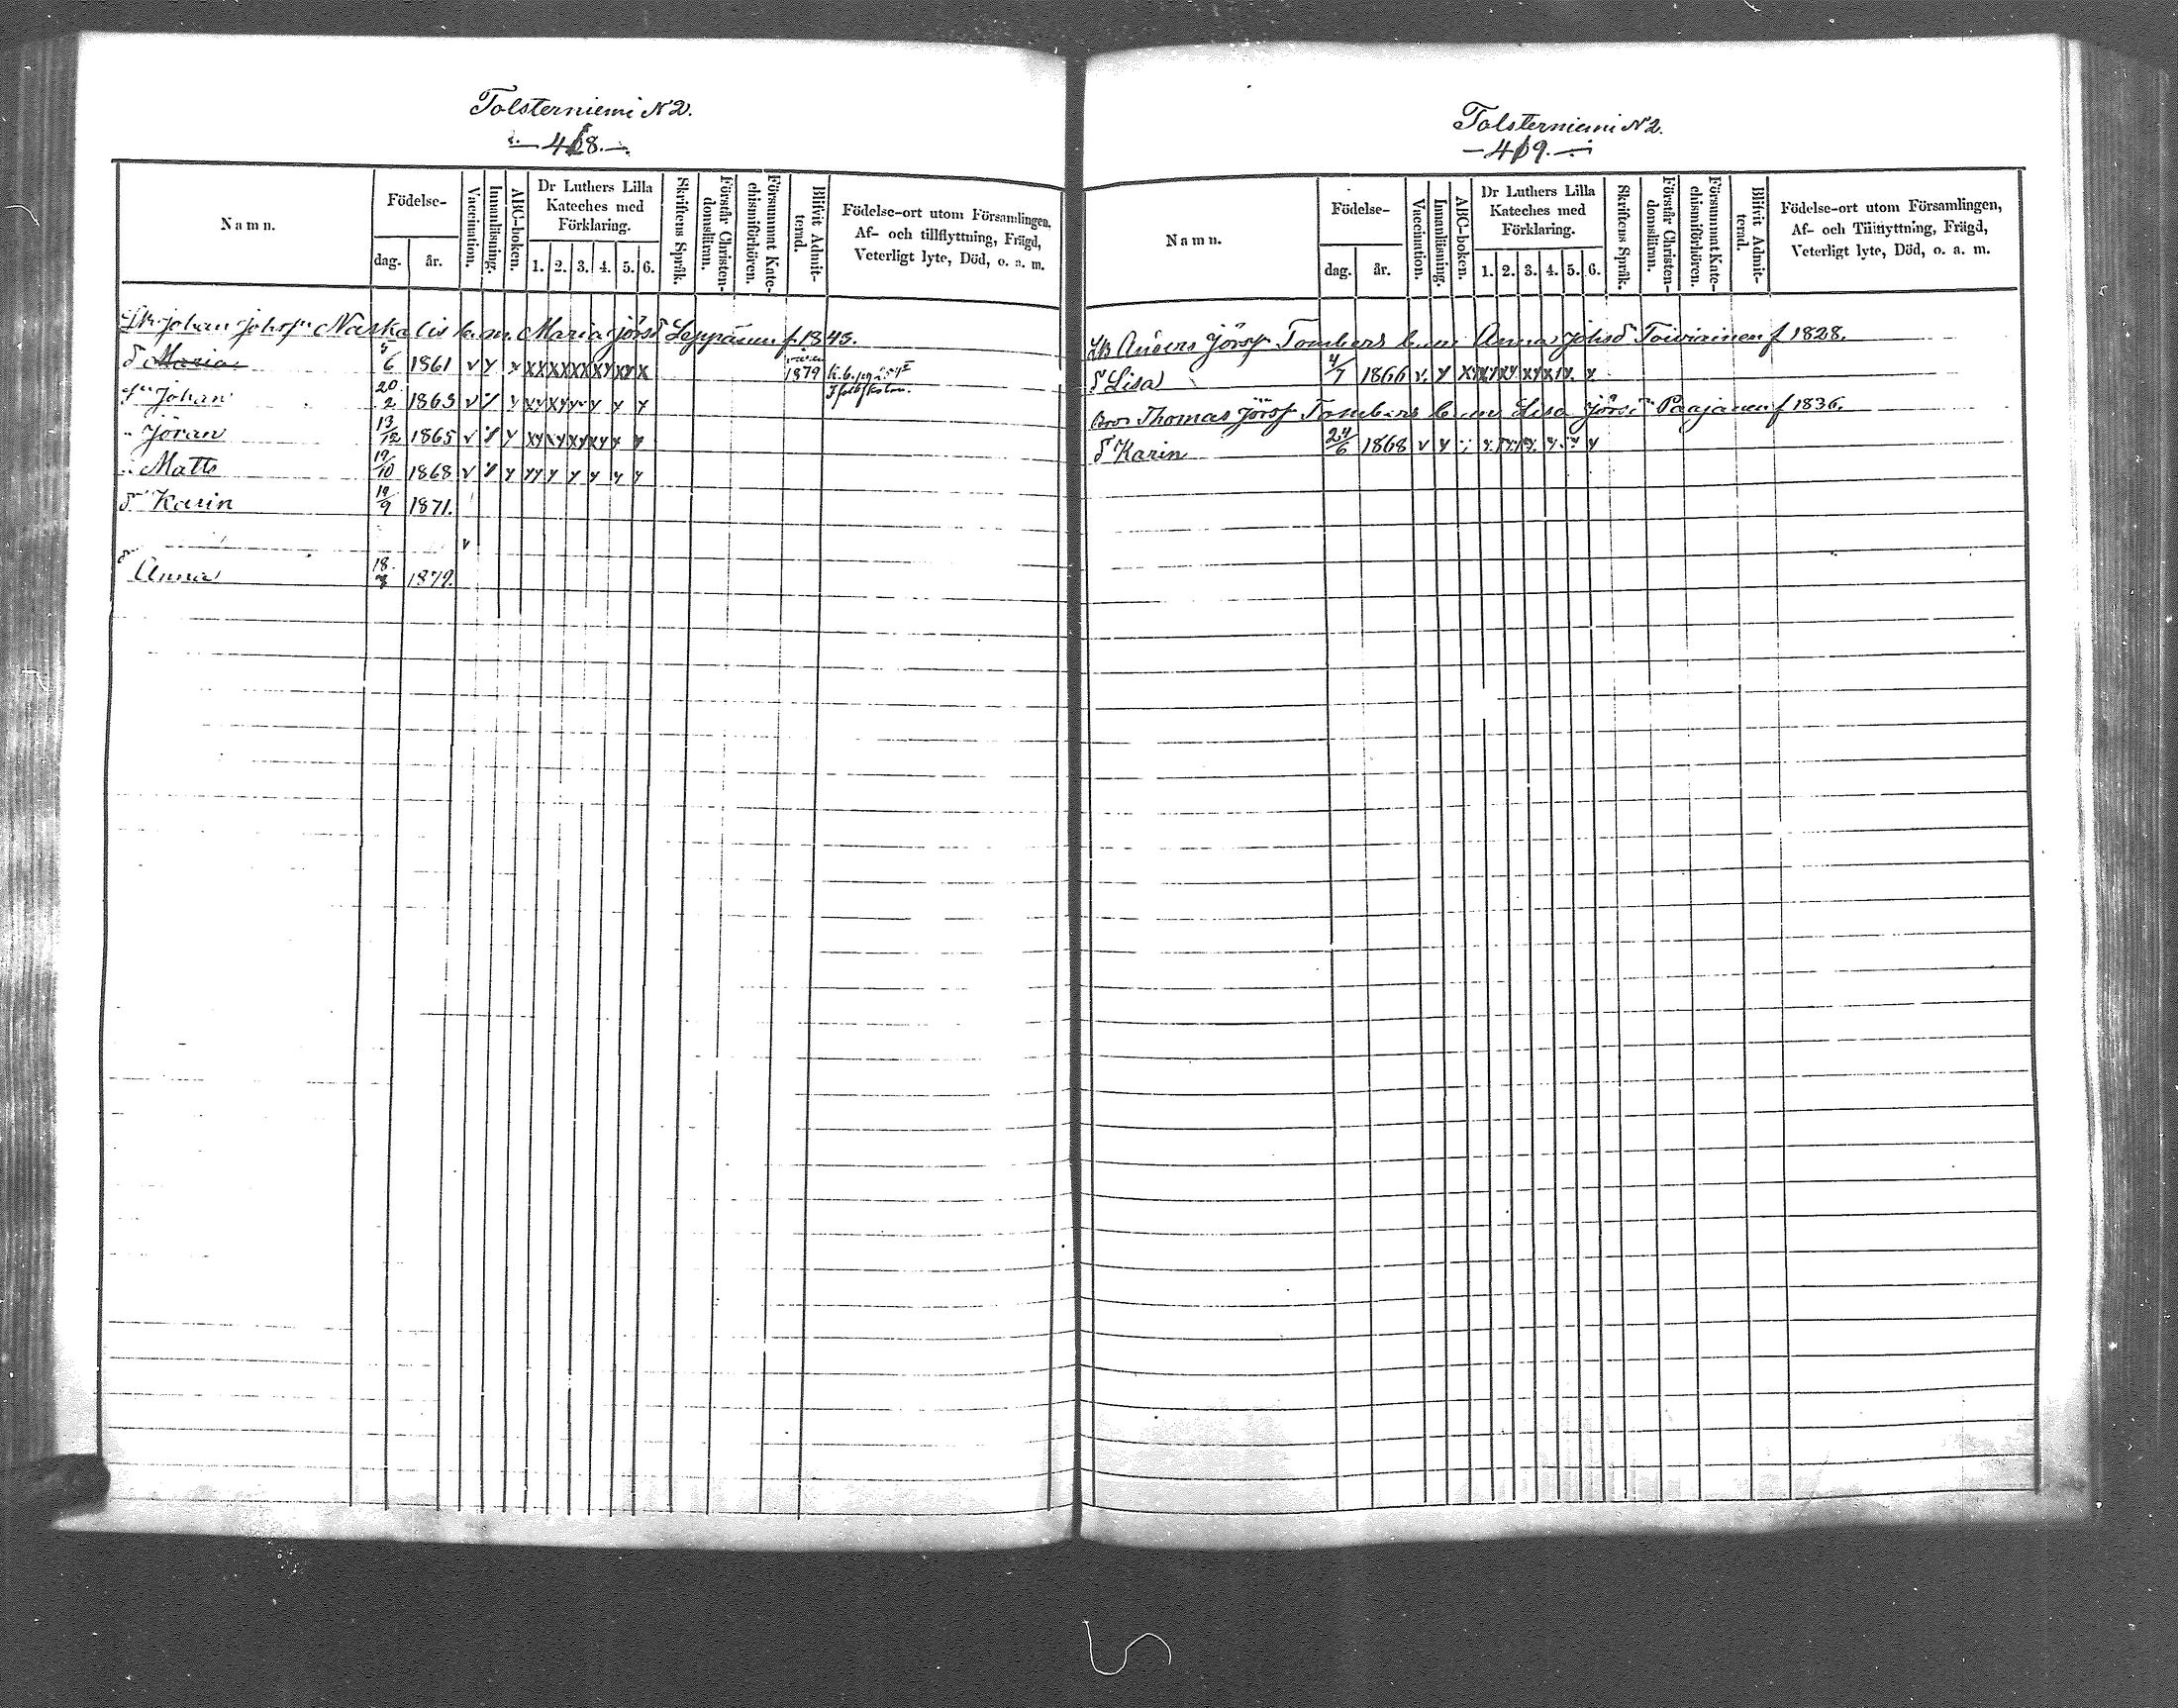 Tolsterniemi N 2.
418.
Namn.
Födelse-
dag.
år.
Vaccination.
Innanläsning.
ABC-boken.
Dr Luthers Lilla
Kateches med
Förklaring.
1. 2. 3. 4. 5. 6.
Skriftens Språk.
Förstår Christen-
domsläran.
Försummat Kate-
chismiförhören.
Blifvit Admit-
terad.
Födelse-ort utom Församlingen,
Af- och tillflyttning, Frägd,
Veterligt lyte, Död, o. a. m.
Johan Naskalis Maria Jörsd Leppänen f. 1843.
d Maria 5/6 1861 v y x x x x x x x x y x y x 1879
Johan 20/2 1863 v y x y x y y y y y
" Jöran 13/12 1865 v y x y x y x y x y y y
" Matts 19/10 1868 v y y y y y y y y
d Karin 19/9 1871.
v
d Anna 18 1879.
Tolsterniemi N 2.
419.
Namn.
Födelse-
dag.
år.
Vaccination.
Innanläsning.
ABC-boken.
Dr Luthers Lilla
Kateches med
Förklaring.
1. 2. 3. 4. 5. 6.
Skriftens Språk.
Förstår Christen-
domsläran.
Försummat Kate-
chismiförhören.
Blifvit Admit-
terad.
Födelse-ort utom Församlingen,
Af- och Tillflyttning, Frägd,
Veterligt lyte, Död, o. a. m.
Anders Jörsf Tombers Anna Johsd Toiviainen f 1828.
d Lisa 4/7 1866 v. y x y x y x y x y x y. y
Bror Thomas Jörsf Tombers Lisa Jörsd Paajanen f 1836.
d Karin 24/6 1868 v y y. y. y. y. y y